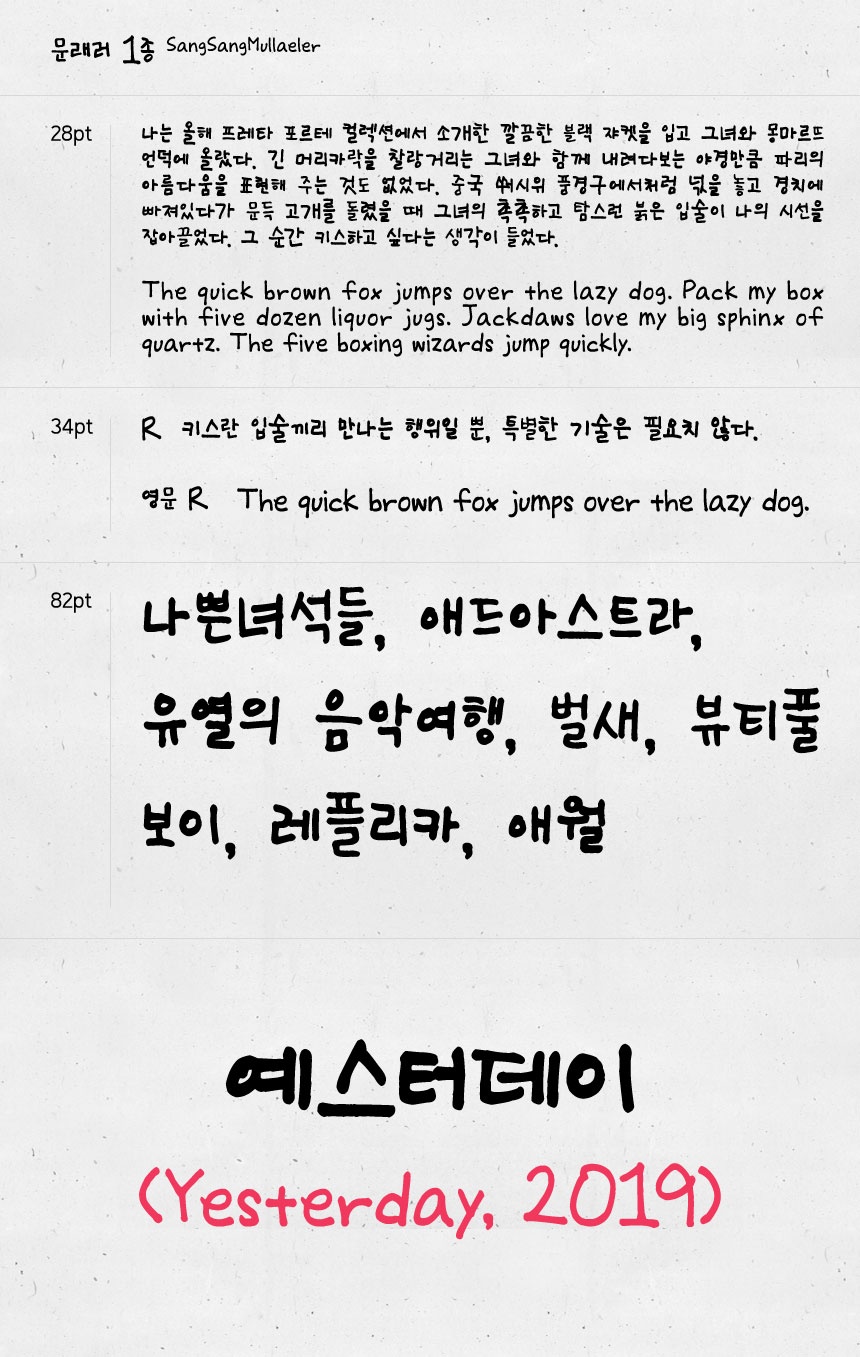 문래러 1종 SangSangMullaeler
28pt
나는 올해 프레타 포르테 컬렉션에서 소개한 깔끔한 블랙 쟈켓을 입고 그녀와 몽마르뜨
언덕에 올랐다. 긴 머리카락을 찰랑거리는 그녀와 함께 내려다보는 야경만큼 파리의
아름다움을 표현해 주는 것도 없었다. 중국 쒀시위 풍경구에서처럼 넋을 놓고 경치에
빠져있다가 문득 고개를 돌렸을 때 그녀의 촉촉하고 탐스런 붉은 입술이 나의 시선을
잡아끌었다. 그 순간 키스하고 싶다는 생각이 들었다.
The quick brown fox jumps over the lazy dog. Pack my box
with five dozen liquor jugs. Jackdaws love my big sphinx of
quartz. The five boxing wizards jump quickly.
34pt
R 키스란 입술끼리 만나는 행위일 뿐, 특별한 기술은 필요치 않다.
영문 R The quick brown fox jumps over the lazy dog.
82pt
나쁜녀석들, 애드아스트라,
유열의 음악여행, 벌새, 뷰티풀
보이, 레플리카, 애월
예스터데이
(Yesterday, 2019)